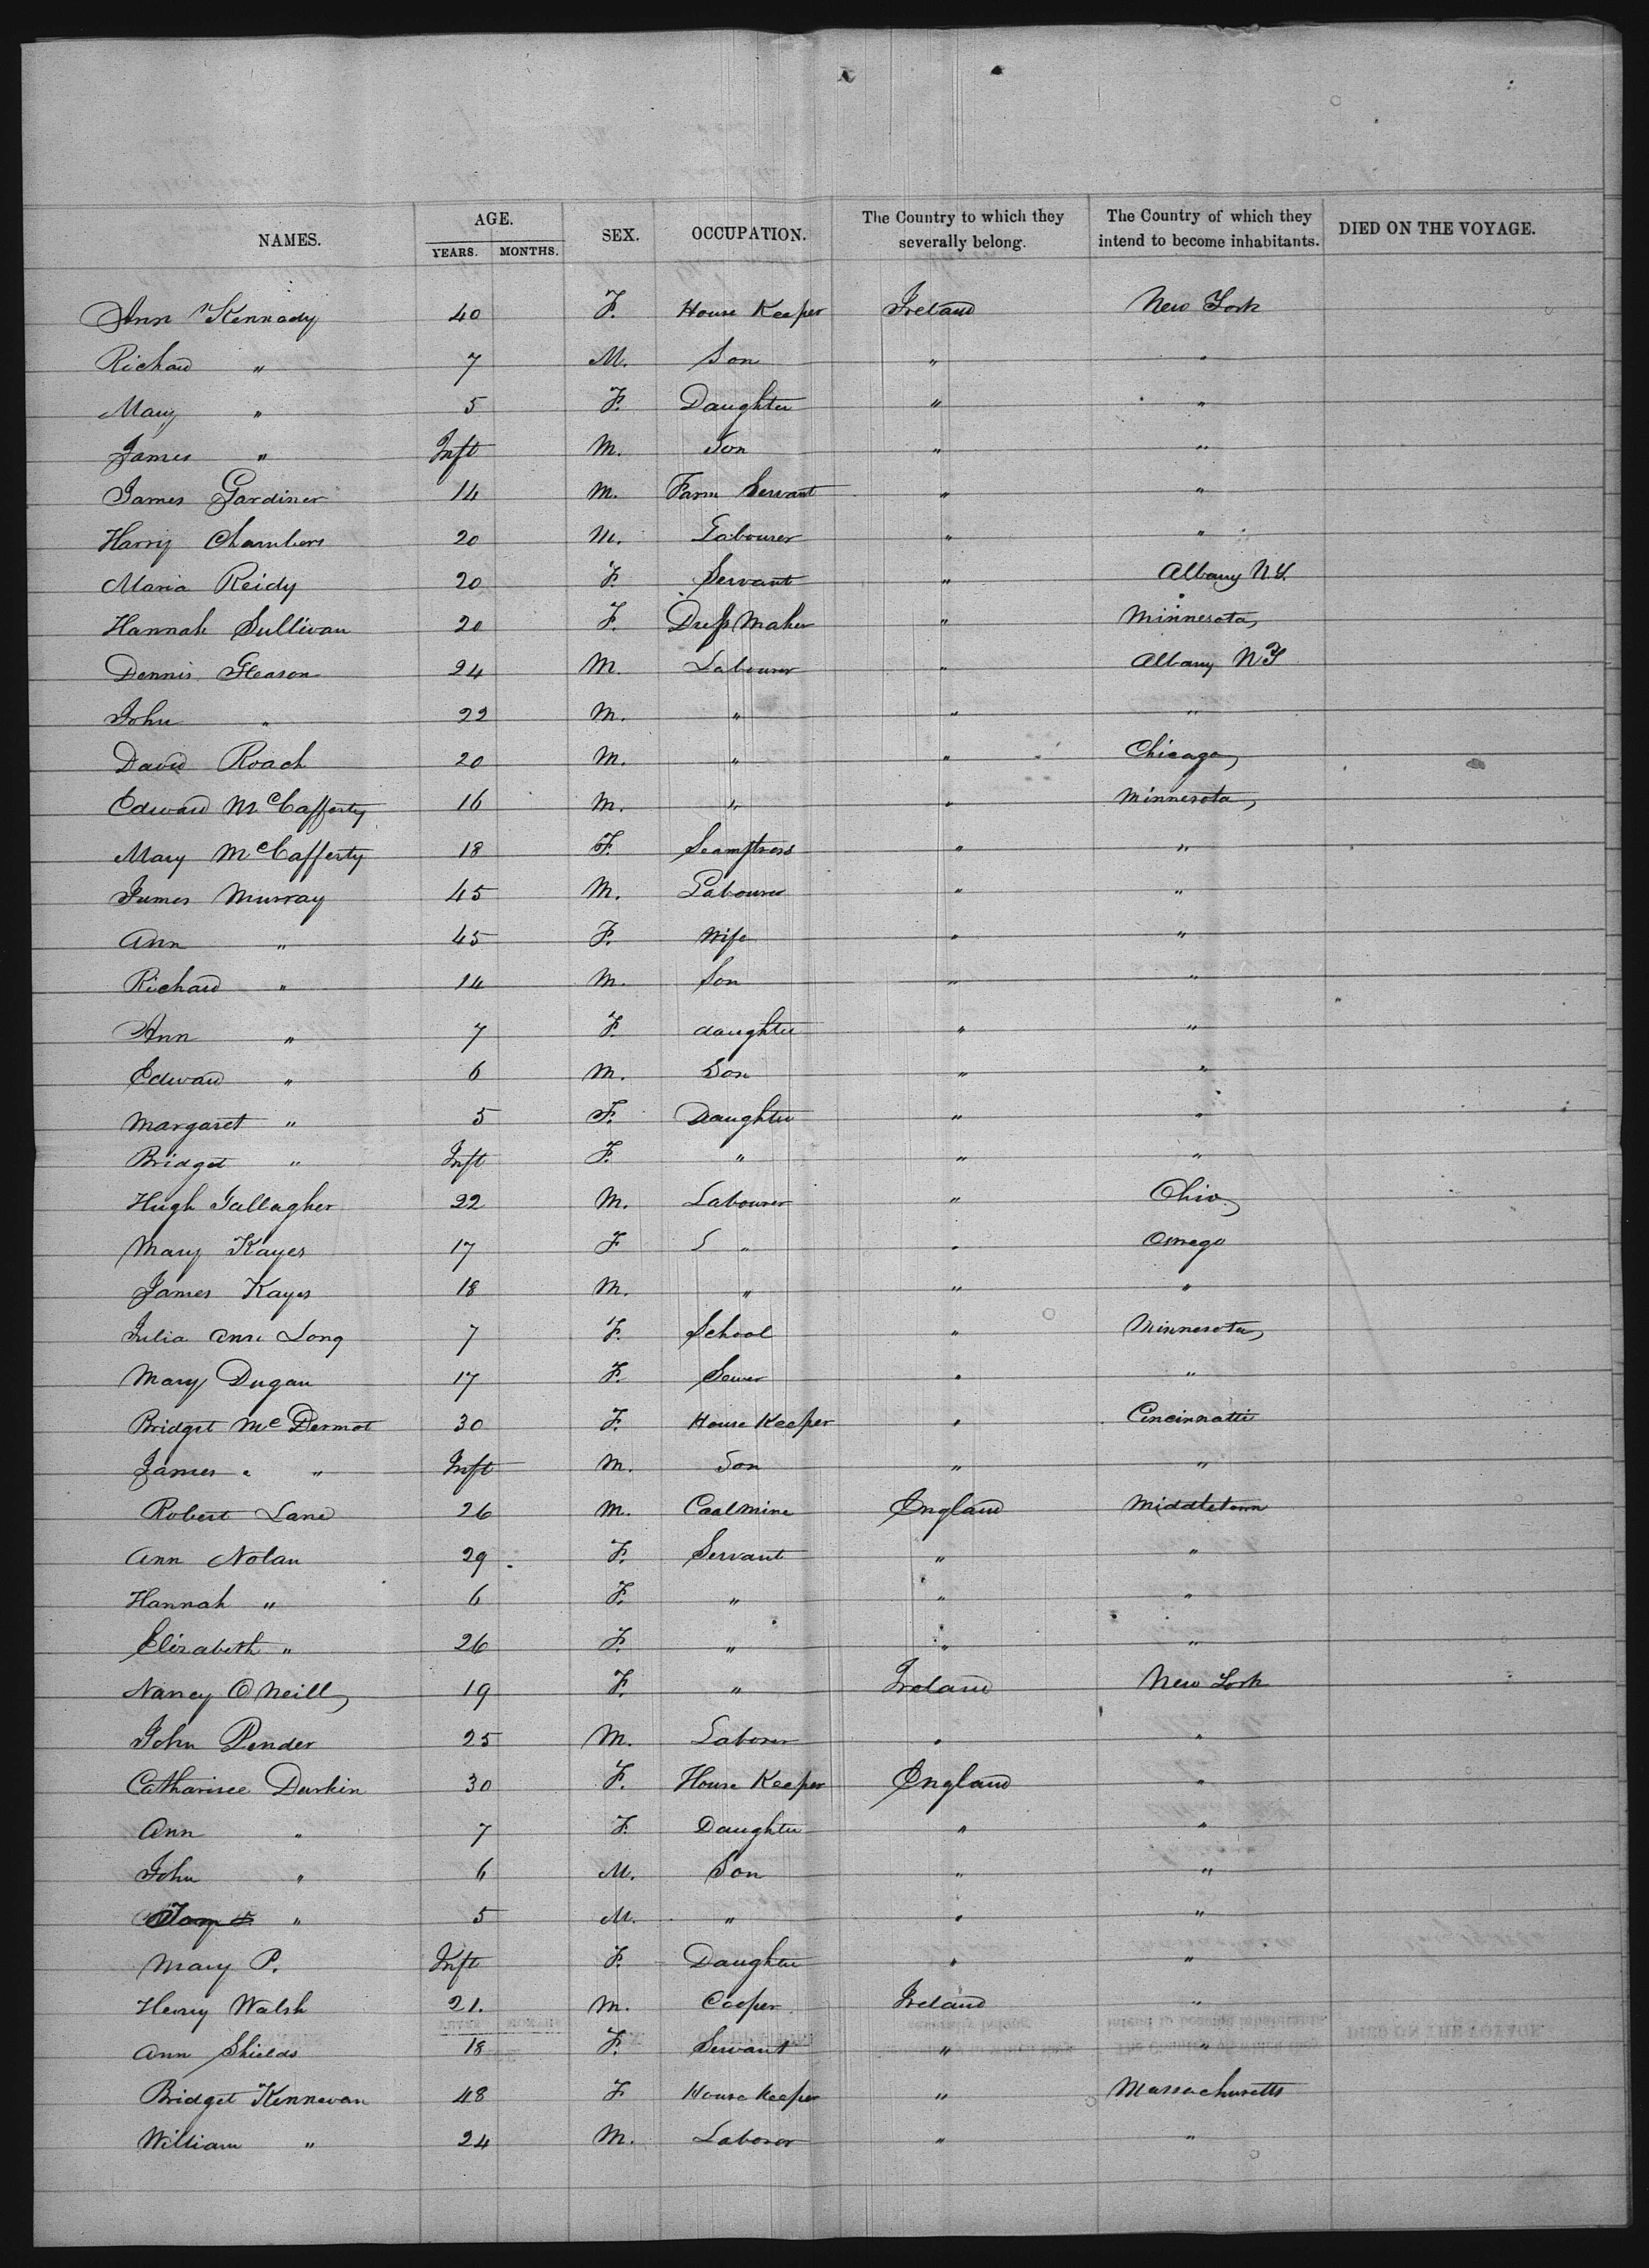 NAMES. AGE. YEARS. MONTHS. SEX. OCCUPATION. The Country to which they severally belong. The Country of which they intend to become inhabitants. DIED ON THE VOYAGE.
Ann Kennady 40 F. House Keeper Ireland New York
Richard " 7 M. Son " "
Mary " 5 F. Daughter " "
James " Inft M. Son " "
James Gardiner 14 M. Farm Servant " "
Harry Chambers 20 M. Labourer " "
Maria Reidy 20 F. Servant " Albany N.Y.
Hannah Sullivan 20 F. Dress Maker " Minnesota,
Dennis Gleason 24 M. Labourer " Albany NY
John " 22 M. " " "
David Roach 20 M. " " Chicago,
Edward McCafferty 16 M. " " Minnesota,
Mary McCafferty 18 F. Seamstress " "
James Murray 45 M. Labourer " "
Ann " 45 F. Wife " "
Richard " 14 M. Son " "
Ann " 7 F. daughter " "
Edward " 6 M. Son " "
Margaret " 5 F. Daughter " "
Bridget " Inft F. " " "
Hugh Gallagher 22 M. Labourer " Ohio,
Mary Kayes 17 F " "
James Kayes 18 M. " " "
Julia Ann Long 7 F. School " Minnesota,
Mary Dugan 17 F. Sewer " "
Bridget McDermot 30 F. House Keeper " Cincinnatti
James " " Inft M. Son " "
Robert Lane 26 M. Coalmine England Middletown
Ann Nolan 29. F. Servant " "
Hannah " 6 F. " " "
Elizabeth " 26 F. " " "
Nancy O Neill, 19 F. " Ireland New York
John Pender 25 M. Laborer " "
Catharine Durkin 30 F. House Keeper England "
Ann " 7 F. Daughter " "
John " 6 M. Son " "
" 5 M. " " "
Mary P. Inft F. Daughter " "
Henry Walsh 21. M. Cooper Ireland "
Ann Shields 18 F. Servant " "
Bridget Kinnevan 48 F House Keeper " Massachusetts
William " 24 M. Laboror " "